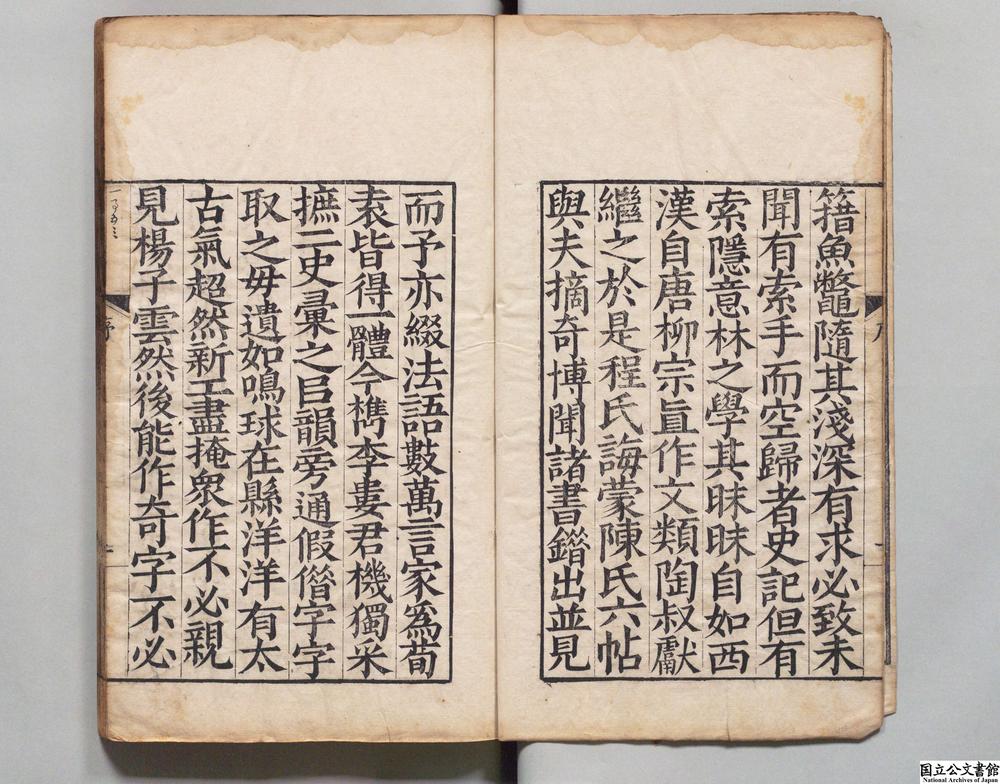 簎魚鼈隨其淺深有求必致未
聞有索手而空歸者史記但有
索隱意林之學其昧昧自如西
漢自唐柳宗直作文類陶叔獻
繼之於是程氏誨蒙陳氏六帖
與夫摘奇博聞諸書鏪出並見
而予亦綴法語數萬言家爲荀
袁皆得一體今檇李婁君機獨米
摭二史彚之巨韻旁通假僭字字
取之毋遺如鳴球在縣洋洋有太
古氣超然新工盡掩衆作不必親
見楊子雲然後能作奇字不必
序
国立公文書館
National Archives of Japan